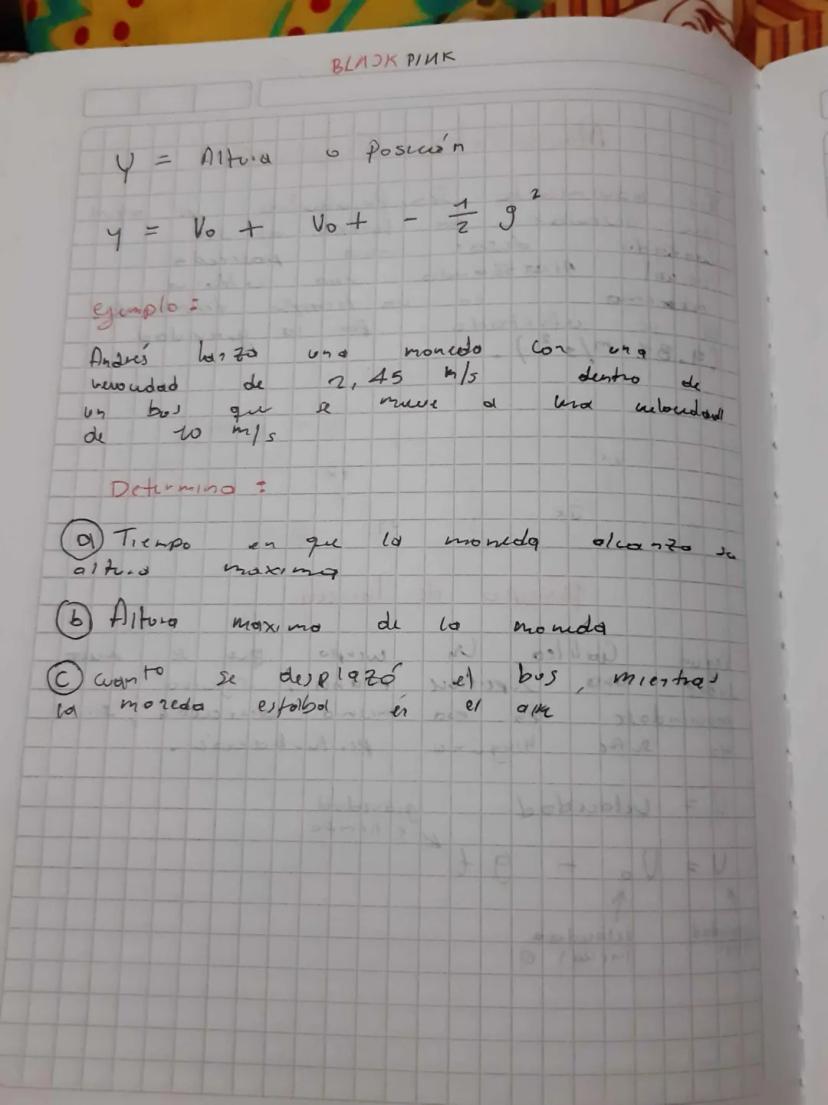 BLACK PINK
y = Altura o Posición
y = Vo t Vo t - 1/2 g²
Ejemplo:
Andrés lanzo una moneda con una
velocidad de 2,45 m/s dentro de
un bus que se mueve a una velocidad
de 10 m/s
Determina:
a) Tiempo en que la moneda alcanza su
altura maxima
b) Altura maxima de la moneda
c) cuanto se desplazó el bus, mientras
la moneda estaba en el aire